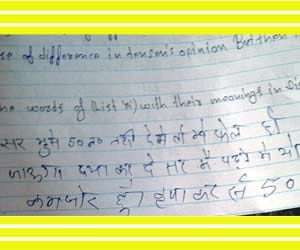 se of difference in tenson's opinion But then
he words of (List 'A') with their meanings in Lis
सर मुझे 50 न० नही देंगे तो मैं फेल हो
जाऊंगा दया कर दे सर मैं पढ़ने मे
कमजोर हूँ कृपा कर के 50